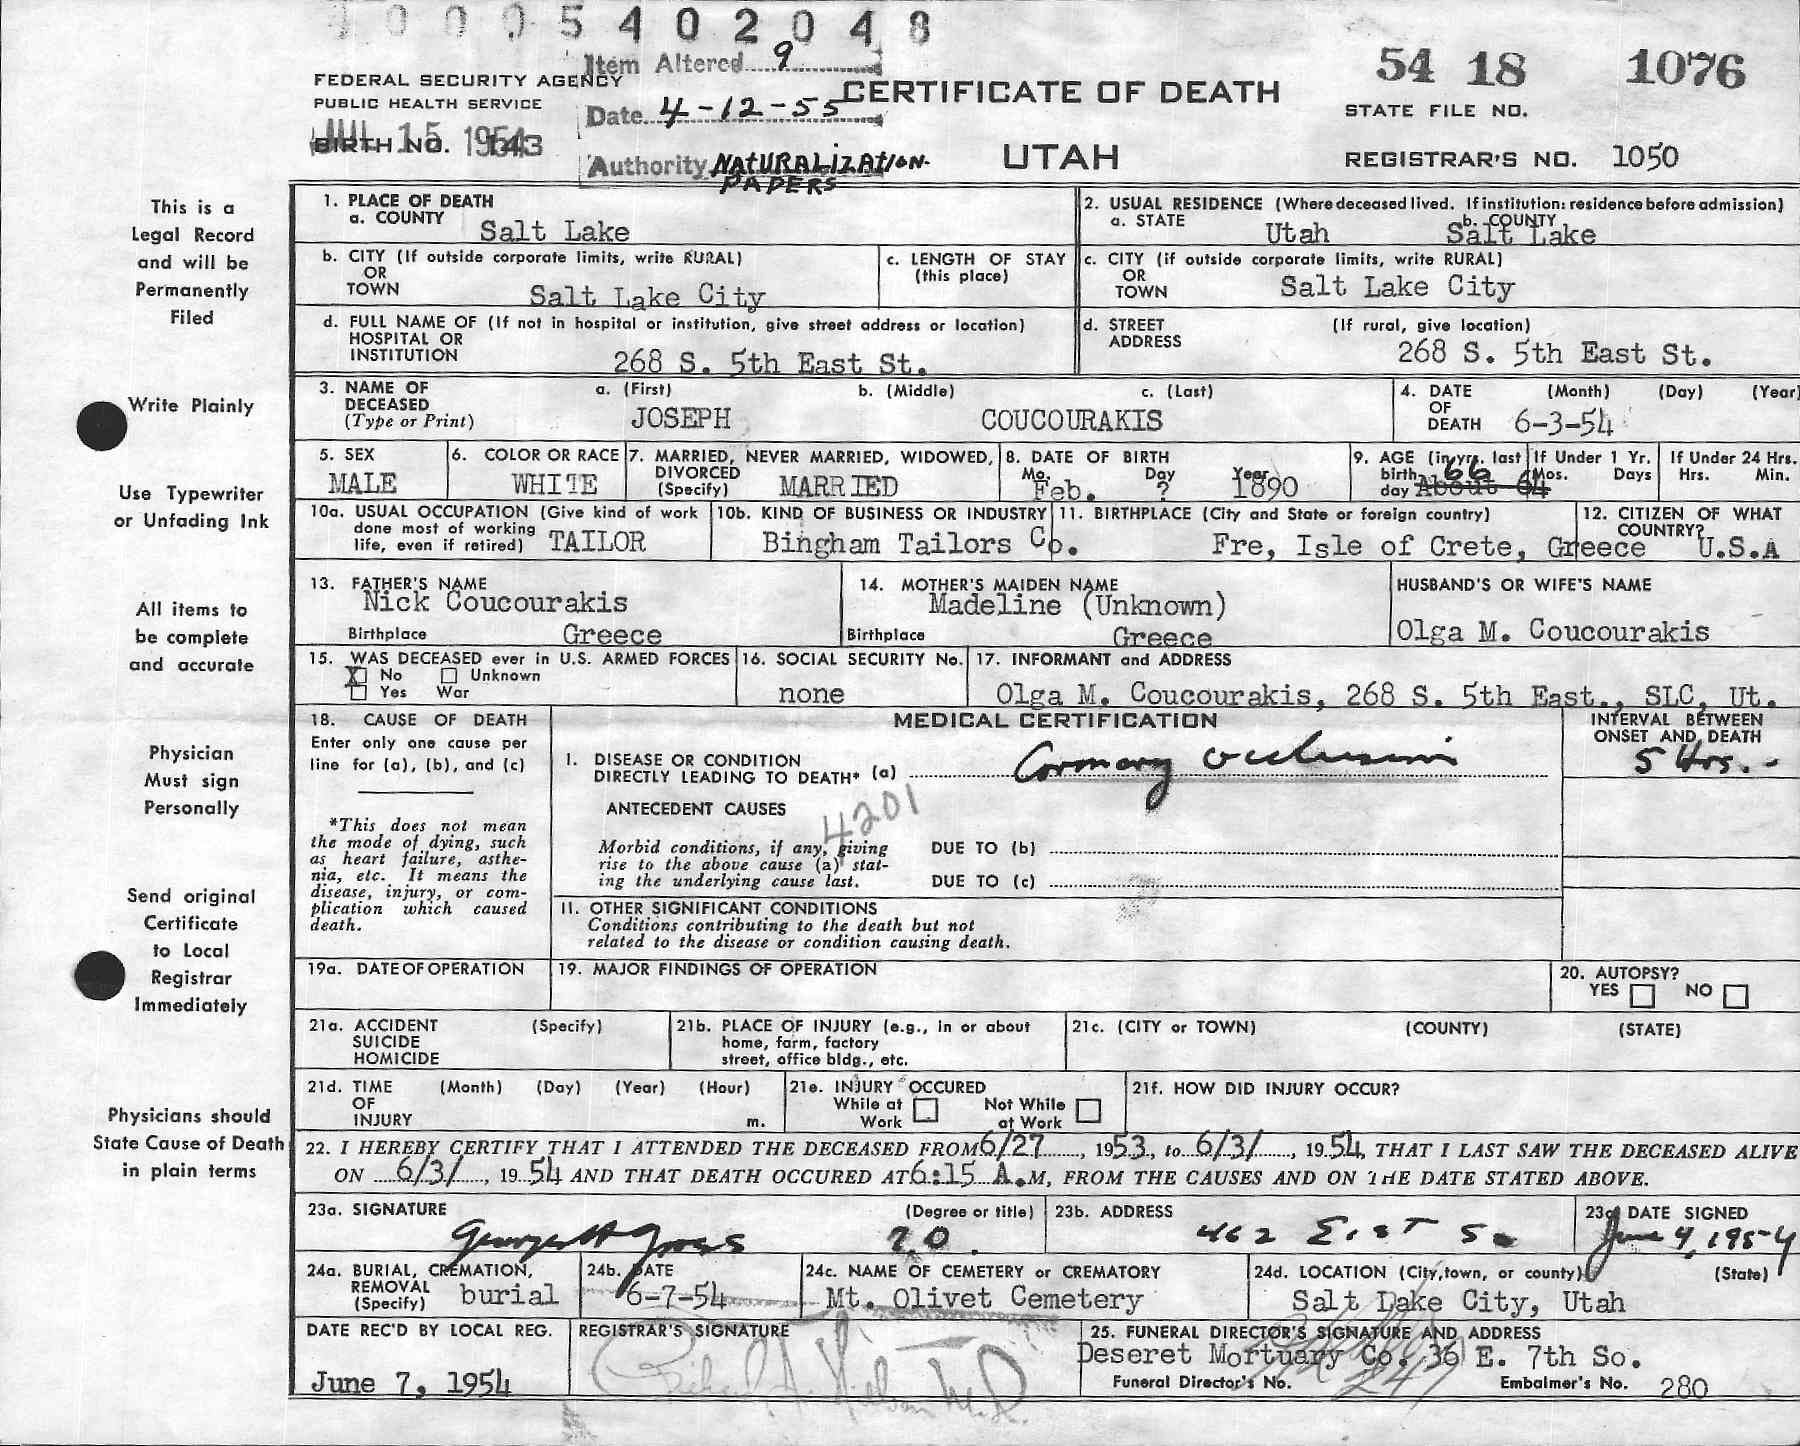 0005402048
Item Altered 9
Date 4-12-55
Authority NATURALIZATION PAPERS
FEDERAL SECURITY AGENCY
PUBLIC HEALTH SERVICE
BIRTH NO. 143
JUL 15 1954
CERTIFICATE OF DEATH
UTAH
54 18 1076
STATE FILE NO.
REGISTRAR'S NO. 1050
This is a
Legal Record
and will be
Permanently
Filed
Write Plainly
Use Typewriter
or Unfading Ink
All items to
be complete
and accurate
Physician
Must sign
Personally
Send original
Certificate
to Local
Registrar
Immediately
Physicians should
State Cause of Death
in plain terms
1. PLACE OF DEATH
a. COUNTY Salt Lake
2. USUAL RESIDENCE (Where deceased lived. If institution: residence before admission)
a. STATE Utah b. COUNTY Salt Lake
b. CITY (If outside corporate limits, write RURAL)
OR
TOWN Salt Lake City
c. LENGTH OF STAY
(this place)
c. CITY (if outside corporate limits, write RURAL)
OR
TOWN Salt Lake City
d. FULL NAME OF (If not in hospital or institution, give street address or location)
HOSPITAL OR
INSTITUTION 268 S. 5th East St.
d. STREET (If rural, give location)
ADDRESS 268 S. 5th East St.
3. NAME OF a. (First) b. (Middle) c. (Last)
DECEASED
(Type or Print) JOSEPH COUCOURAKIS
4. DATE (Month) (Day) (Year)
OF
DEATH 6-3-54
5. SEX
MALE
6. COLOR OR RACE
WHITE
7. MARRIED, NEVER MARRIED, WIDOWED,
DIVORCED
(Specify) MARRIED
8. DATE OF BIRTH
Mo. Day Year
Feb. ? 1890
9. AGE (in yrs. last
birth
day 66 About 64
If Under 1 Yr.
Mos. Days
If Under 24 Hrs.
Hrs. Min.
10a. USUAL OCCUPATION (Give kind of work
done most of working
life, even if retired) TAILOR
10b. KIND OF BUSINESS OR INDUSTRY
Bingham Tailors Co.
11. BIRTHPLACE (City and State or foreign country)
Fre, Isle of Crete, Greece
12. CITIZEN OF WHAT
COUNTRY?
U.S.A
13. FATHER'S NAME
Nick Coucourakis
Birthplace Greece
14. MOTHER'S MAIDEN NAME
Madeline (Unknown)
Birthplace Greece
HUSBAND'S OR WIFE'S NAME
Olga M. Coucourakis
15. WAS DECEASED ever in U.S. ARMED FORCES
X No Unknown
Yes War
16. SOCIAL SECURITY No.
none
17. INFORMANT and ADDRESS
Olga M. Coucourakis, 268 S. 5th East., SLC, Ut.
18. CAUSE OF DEATH
Enter only one cause per
line for (a), (b), and (c)
*This does not mean
the mode of dying, such
as heart failure, asthe-
nia, etc. It means the
disease, injury, or com-
plication which caused
death.
MEDICAL CERTIFICATION
INTERVAL BETWEEN
ONSET AND DEATH
I. DISEASE OR CONDITION
DIRECTLY LEADING TO DEATH* (a) Coronary occlusion
5 Hrs.
ANTECEDENT CAUSES
4201
Morbid conditions, if any, giving
rise to the above cause (a) stat-
ing the underlying cause last.
DUE TO (b)
DUE TO (c)
II. OTHER SIGNIFICANT CONDITIONS
Conditions contributing to the death but not
related to the disease or condition causing death.
19a. DATE OF OPERATION
19. MAJOR FINDINGS OF OPERATION
20. AUTOPSY?
YES NO
21a. ACCIDENT (Specify)
SUICIDE
HOMICIDE
21b. PLACE OF INJURY (e.g., in or about
home, farm, factory
street, office bldg., etc.
21c. (CITY or TOWN) (COUNTY) (STATE)
21d. TIME (Month) (Day) (Year) (Hour)
OF
INJURY m.
21e. INJURY OCCURED
While at Not While
Work at Work
21f. HOW DID INJURY OCCUR?
22. I HEREBY CERTIFY THAT I ATTENDED THE DECEASED FROM 6/27, 1953, to 6/3/, 1954, THAT I LAST SAW THE DECEASED ALIVE
ON 6/3/, 1954 AND THAT DEATH OCCURED AT 6:15 A.M, FROM THE CAUSES AND ON THE DATE STATED ABOVE.
23a. SIGNATURE (Degree or title)
George H Gross
23b. ADDRESS
462 East So
23c. DATE SIGNED
June 4, 1954
24a. BURIAL, CREMATION,
REMOVAL
(Specify) burial
24b. DATE
6-7-54
24c. NAME OF CEMETERY or CREMATORY
Mt. Olivet Cemetery
24d. LOCATION (City, town, or county) (State)
Salt Lake City, Utah
DATE REC'D BY LOCAL REG.
June 7, 1954
REGISTRAR'S SIGNATURE
25. FUNERAL DIRECTOR'S SIGNATURE AND ADDRESS
Deseret Mortuary Co. 36 E. 7th So.
Funeral Director's No. 247
Embalmer's No. 280